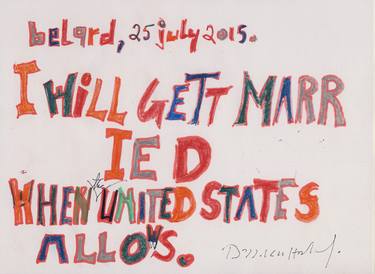 belard, 25 july 2015.
I WILL GETT MARR
IED
WHEN the UNITED STATES
ALLOWS.